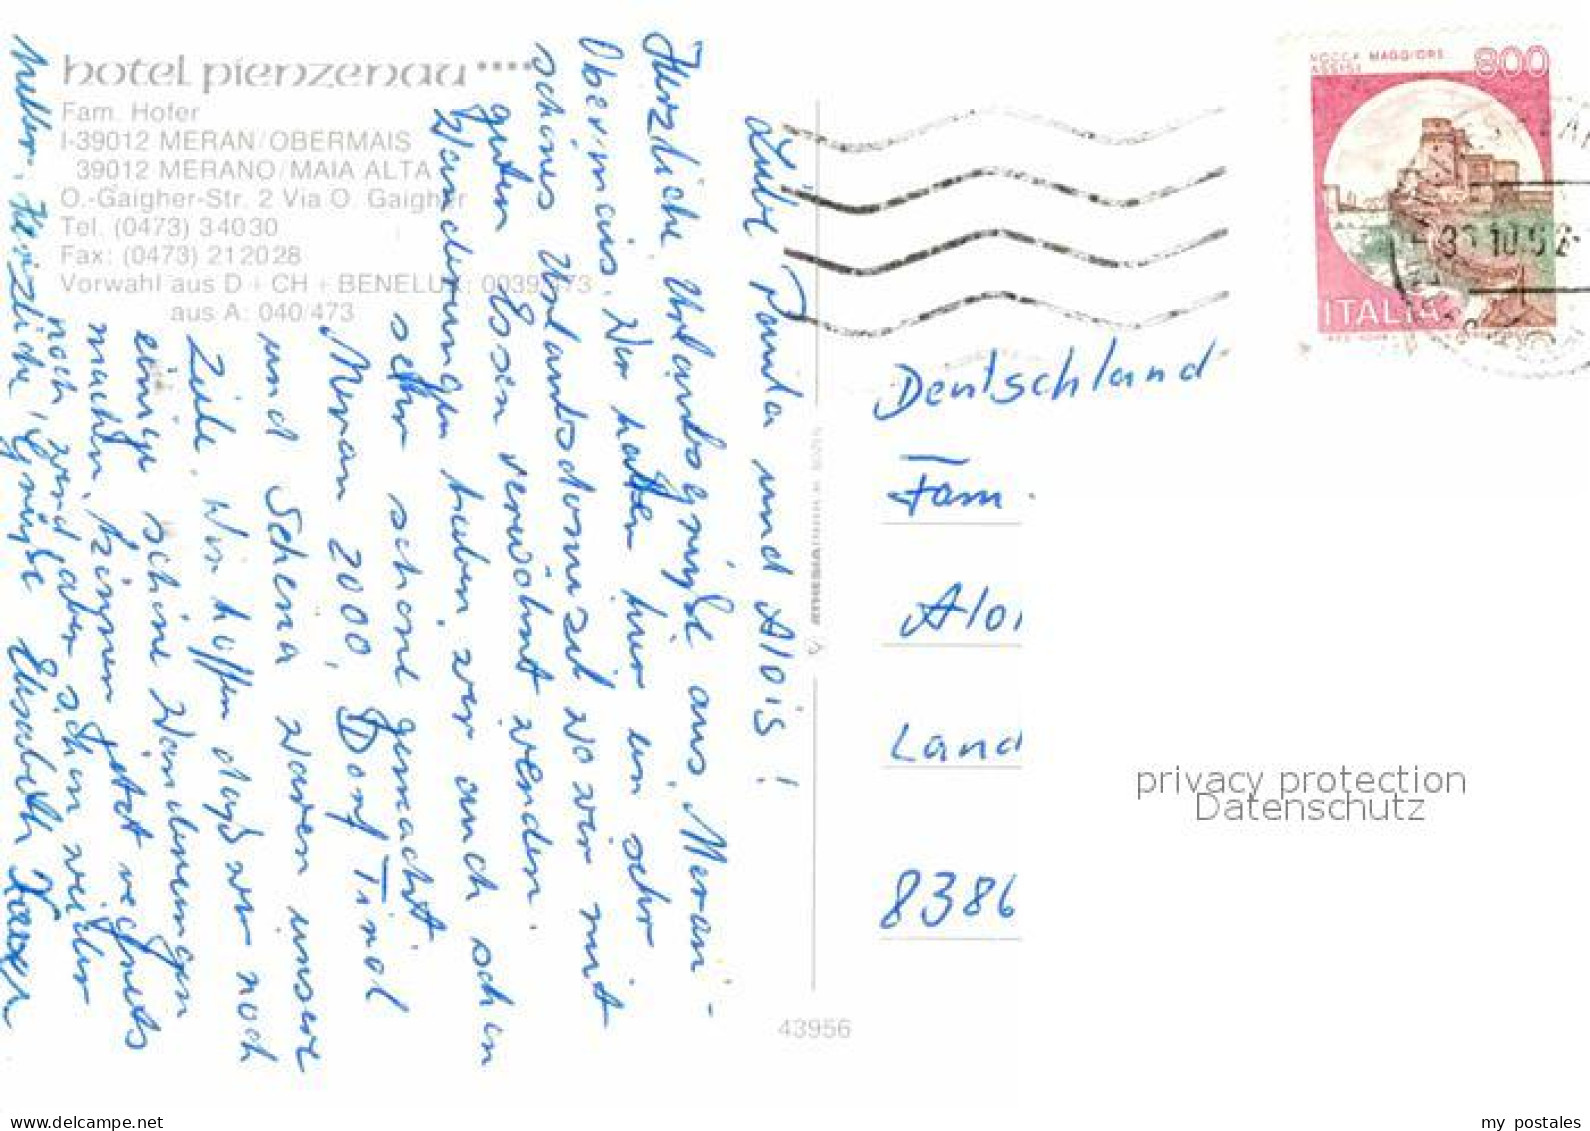 hotel pienzenau ****
Fam. Hofer
I-39012 MERAN/OBERMAIS
39012 MERANO/MAIA ALTA
O.-Gaigher-Str. 2 Via O. Gaigher
Tel. (0473) 34030
Fax: (0473) 212028
Vorwahl aus D + CH + BENELUX: 0039/473
aus A: 040/473
Liebe Paula und Alois!
Herzliche Urlaubsgrüße aus Meran-
Obermais. Wir hatten hier ein sehr
schönes Urlaubsdomizil wo wir mit
guten Essen verwöhnt werden.
Wanderungen haben wir auch schon
sehr schöne gemacht
Meran 2000, Dorf Tirol
und Schena waren unsere
Ziele. Wir hoffen daß wir noch
einige schöne Wanderungen
machen können, jetzt regnets
noch, wird aber schon weiter
Wetter. Herzliche Grüße Elisabeth
ATHESIA
43956
ROCCA MAGGIORE
ASSISI
800
ITALIA
30.10.92
Deutschland
Fam.
Aloi
Land
8386
privacy protection
Datenschutz
my postales